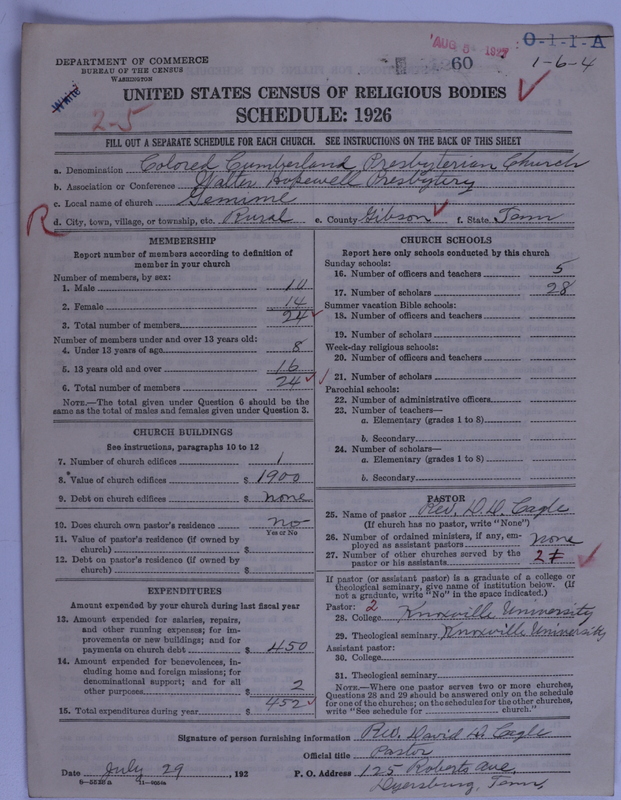 AUG 5 1927
O-1-1-A
60
1-6-4
DEPARTMENT OF COMMERCE
BUREAU OF THE CENSUS
WASHINGTON
White
2-5
UNITED STATES CENSUS OF RELIGIOUS BODIES
SCHEDULE: 1926
FILL OUT A SEPARATE SCHEDULE FOR EACH CHURCH. SEE INSTRUCTIONS ON THE BACK OF THIS SHEET
a. Denomination Colored Cumberland Presbyterian Church
b. Association or Conference Walter Hopewell Presbytery
c. Local name of church
R
d. City, town, village, or township, etc. Rural e. County Gibson f. State Tenn
MEMBERSHIP
Report number of members according to definition of
member in your church
Number of members, by sex:
1. Male 10
2. Female 14
3. Total number of members 24
Number of members under and over 13 years old:
4. Under 13 years of age 8
5. 13 years old and over 16
6. Total number of members 24
NOTE.—The total given under Question 6 should be the
same as the total of males and females given under Question 3.
CHURCH BUILDINGS
See instructions, paragraphs 10 to 12
7. Number of church edifices 1
8. Value of church edifices $ 1900
9. Debt on church edifices $ none
10. Does church own pastor's residence no
Yes or No
11. Value of pastor's residence (if owned by
church) $
12. Debt on pastor's residence (if owned by
church) $
EXPENDITURES
Amount expended by your church during last fiscal year
13. Amount expended for salaries, repairs,
and other running expenses; for im-
provements or new buildings; and for
payments on church debt $ 450
14. Amount expended for benevolences, in-
cluding home and foreign missions; for
denominational support; and for all
other purposes $ 2
15. Total expenditures during year $ 452
CHURCH SCHOOLS
Report here only schools conducted by this church
Sunday schools:
16. Number of officers and teachers 5
17. Number of scholars 28
Summer vacation Bible schools:
18. Number of officers and teachers
19. Number of scholars
Week-day religious schools:
20. Number of officers and teachers
21. Number of scholars
Parochial schools:
22. Number of administrative officers
23. Number of teachers—
a. Elementary (grades 1 to 8)
b. Secondary
24. Number of scholars—
a. Elementary (grades 1 to 8)
b. Secondary
PASTOR
25. Name of pastor Rev. D. D. Cagle
(If church has no pastor, write "None")
26. Number of ordained ministers, if any, em-
ployed as assistant pastors none
27. Number of other churches served by the
pastor or his assistants 2
If pastor (or assistant pastor) is a graduate of a college or
theological seminary, give name of institution below. (If
not a graduate, write "No" in the space indicated.)
Pastor: 2
28. College Knoxville University
29. Theological seminary Knoxville University
Assistant pastor:
30. College
31. Theological seminary
NOTE.—Where one pastor serves two or more churches,
Questions 28 and 29 should be answered only on the schedule
for one of the churches; on the schedules for the other churches,
write "See schedule for church."
Signature of person furnishing information Rev. David D. Cagle
Official title Pastor
Date July 29, 192 P. O. Address 125 Roberts Ave,
Dyersburg, Tenn,